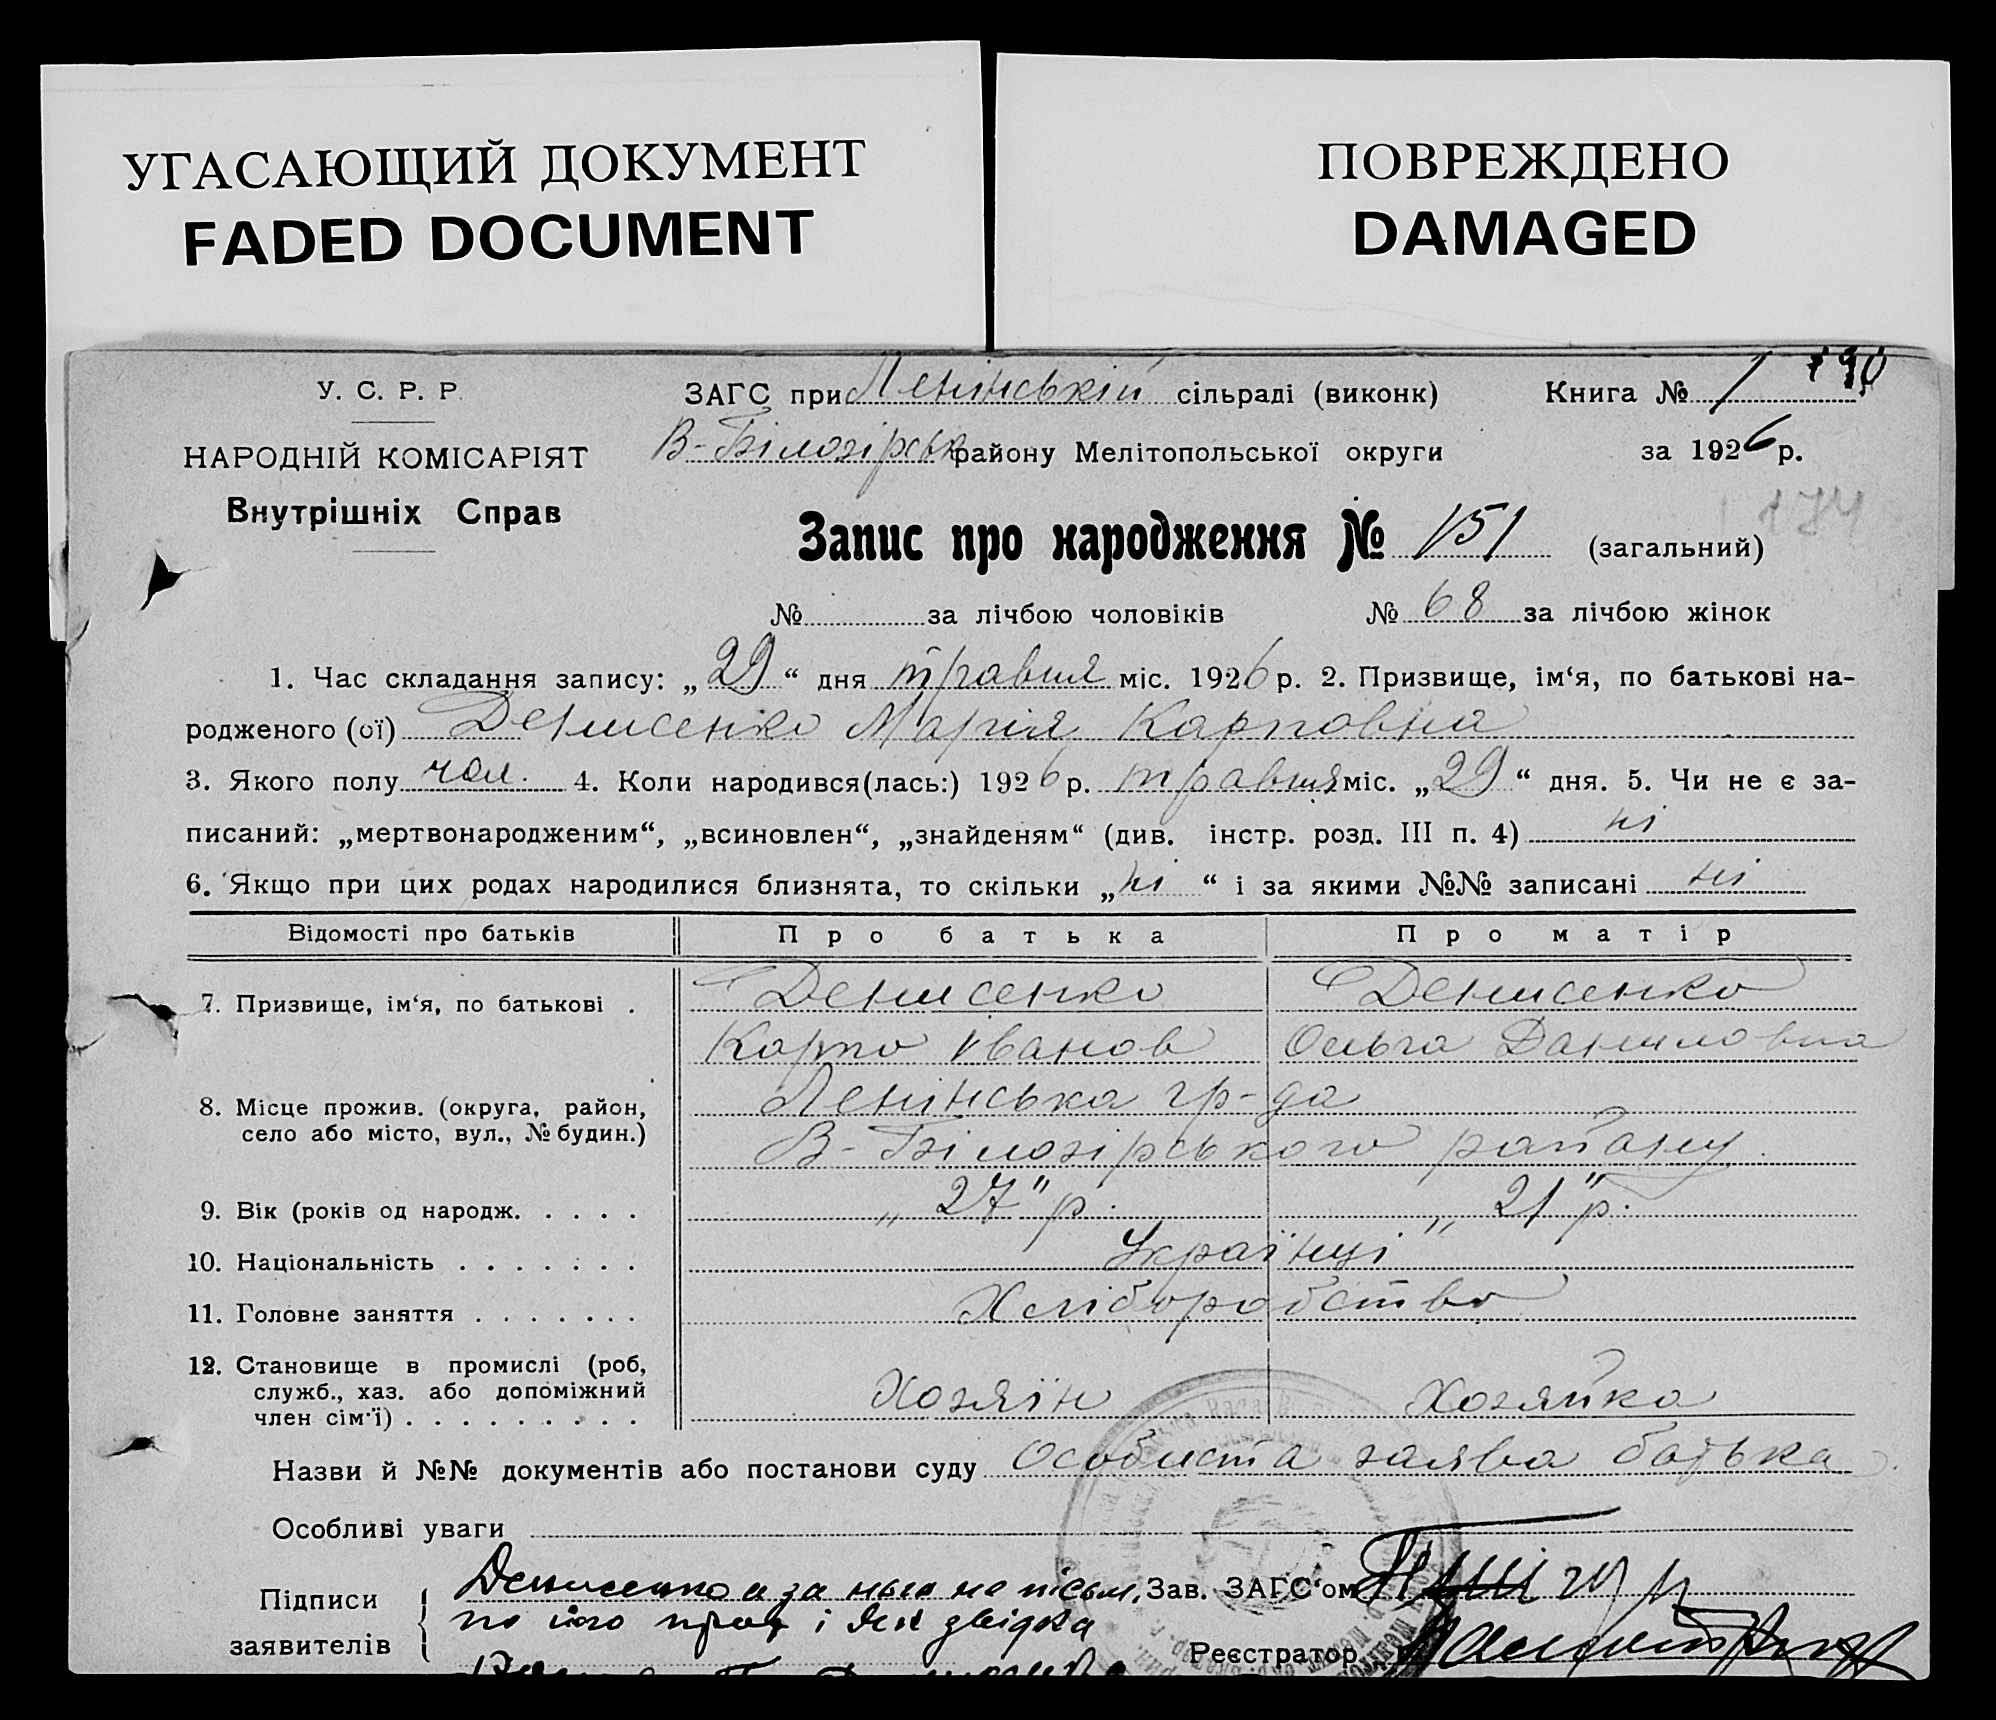 УГАСАЮЩИЙ ДОКУМЕНТ
FADED DOCUMENT
ПОВРЕЖДЕНО
DAMAGED
У. С. Р. Р.
НАРОДНІЙ КОМІСАРІЯТ
Внутрішніх Справ
ЗАГС при Ленінській сільраді (виконк)
В-Білозірськ району Мелітопольської округи
Книга № 1
190
за 1926 р.
174
Запис про народження № 151 (загальний)
№ за лічбою чоловіків № 68 за лічбою жінок
1. Час складання запису: „29“ дня травня міс. 1926 р. 2. Призвище, ім‘я, по батькові на-
родженого (ої) Денисенко Марія Карповна
3. Якого полу чол. 4. Коли народився(лась:) 1926 р. травня міс. „29“ дня. 5. Чи не є за-
писаний: „мертвонародженим“, „всиновлен“, „знайденям“ (див. інстр. розд. III п. 4) ні
6. Якщо при цих родах народилися близнята, то скільки „ні“ і за якими №№ записані ні
Відомості про батьків Про батька Про матір
7. Призвище, ім‘я, по батькові . Денисенко Денисенко
Карпо Іванов Ольга Даниловна
8. Місце прожив. (округа, район, Ленінська гр-да
село або місто, вул., № будин.) В-Білозірського району.
9. Вік (років од народж. . . . . „27" р. „21" р.
10. Національність . . . . . . . Українці
11. Головне заняття . . . . . . . Хліборобство
12. Становище в промислі (роб,
служб., хаз. або допоміжний
член сім'ї) . . . . . . . . . Хозяїн Хозяйка
Назви й №№ документів або постанови суду Особиста заява батька.
Особливі уваги
Підписи
заявителів
Денисенко а за нього не пісьм.
по його прозь і як звідка
Зав. ЗАГС‘ом
Реєстратор